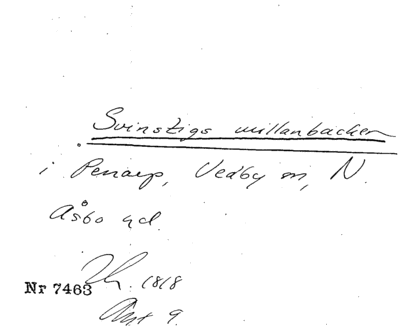 Svinstigs millanbacken
i Penarp, Vedby sn, N.
Åsbo hd.
1818
Nr 7463
Akt 9.